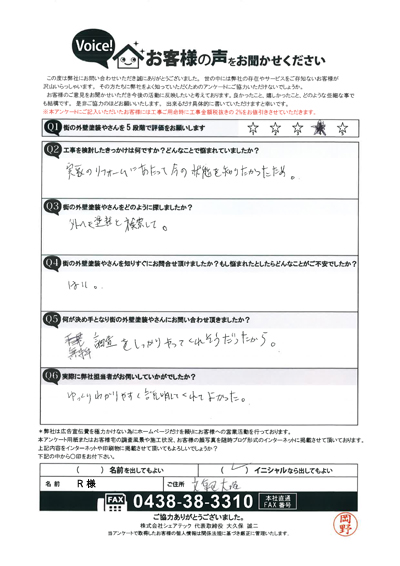 Voice!
お客様の声をお聞かせください
この度は弊社にお問い合わせいただき誠にありがとうございました。世の中には弊社の存在やサービスをご存知ないお客様が
沢山いらっしゃいます。その方たちに弊社をよく知っていただくためのアンケートにご協力いただけないでしょうか。
お客様のご意見をお聞かせいただき今後の活動に反映したいと考えております。良かったこと、嬉しかったこと、どのような些細な事で
も結構です。是非ご協力のほどお願いいたします。出来るだけ具体的に書いていただけますと幸いです。
Q1 街の外壁塗装やさんを5段階で評価をお願いします ☆ ☆ ☆ ★ ☆
Q2 工事を検討したきっかけは何ですか?どんなことで悩まれていましたか?
実家のリフォームにあたって今の状態を知りたかったため。
Q3 街の外壁塗装やさんをどのように探しましたか?
外へき塗装と検索して。
Q4 街の外壁塗装やさんを知りすぐにお問合せ頂けましたか?もし悩まれたとしたらどんなことがご不安でしたか?
はい。
Q5 何が決め手となり街の外壁塗装やさんにお問い合わせ頂きましたか?
無料 調査をしっかりやってくれそうだったから。
Q6 実際に弊社担当者がお伺いしていかがでしたか?
ゆっくりわかりやすく説明してくれてよかった。
＊弊社は広告宣伝費を極力かけない為にホームページだけを頼りにお客様への営業活動を行っております。
本アンケート用紙またはお客様宅の調査風景や施工状況、お客様の顔写真を随時ブログ形式のインターネットに掲載させて頂いております。
上記内容をインターネットや印刷物に掲載させて頂いてもよろしいでしょうか?
下記の中から○印をお付け下さい。
( ) 名前を出してもよい ( ) イニシャルなら出してもよい
名前 R様 ご住所
FAX 0438-38-3310 本社直通 FAX番号
ご協力ありがとうございました。
株式会社シェアテック 代表取締役 大久保 誠二
当アンケートで取得したお客様の個人情報は関係法規に基づき厳正に管理いたします。
岡野